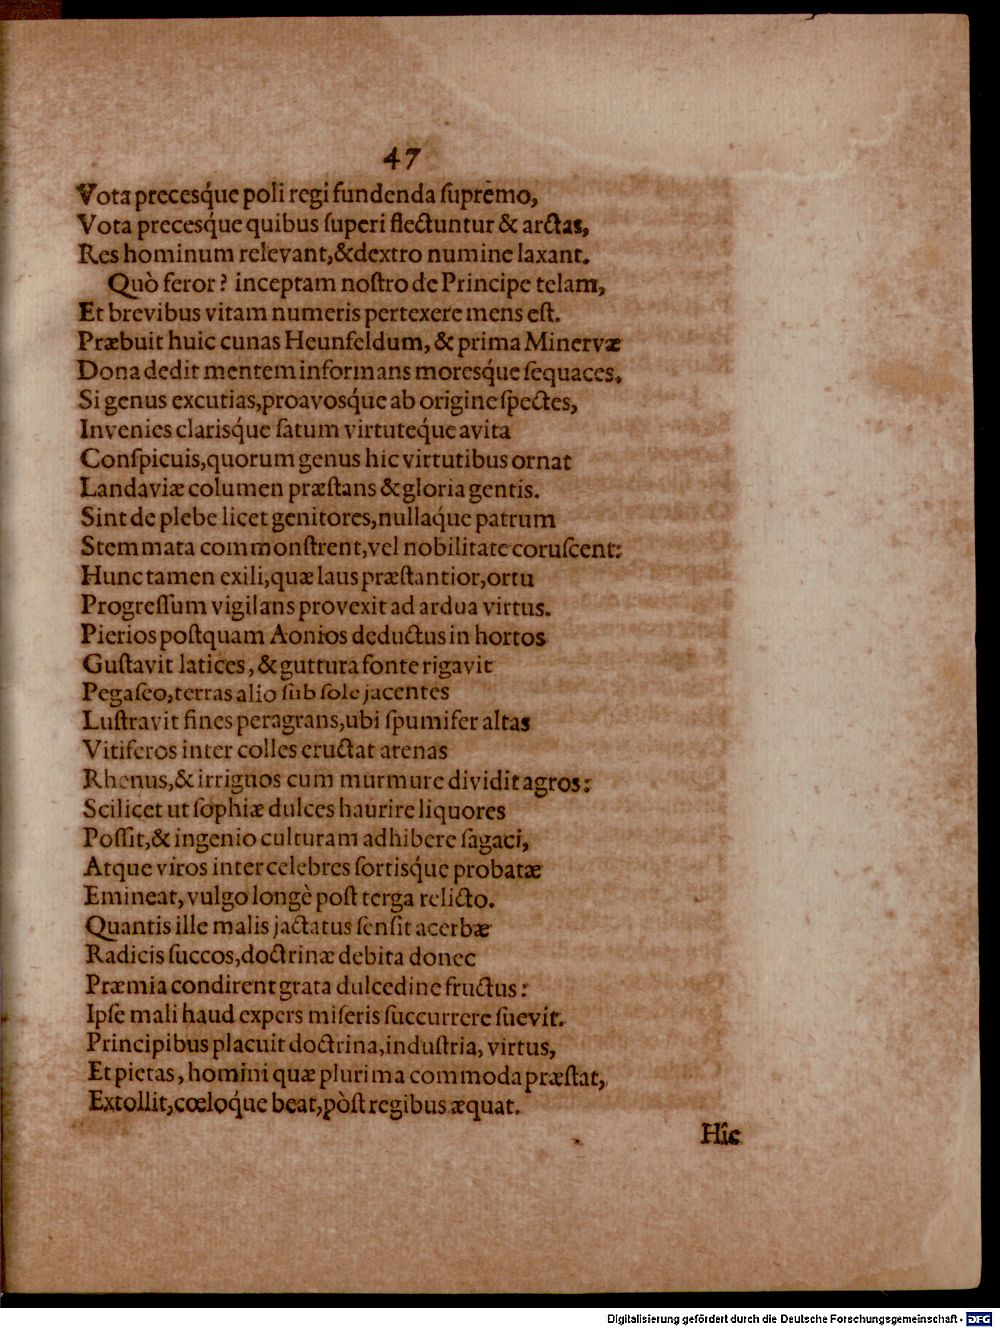 47
Vota precesq́ue poli regi fundenda ſuprêmo,
Vota precesq́ue quibus ſuperi flectuntur & arctas,
Res hominum relevant,&dextro numine laxant.
Quò feror? inceptam noſtro de Principe telam,
Et brevibus vitam numeris pertexere mens eſt.
Præbuit huic cunas Heunfeldum, & prima Minervæ
Dona dedit mentem informans moresq́ue ſequaces.
Si genus excutias,proavosq́ue ab origine ſpectes,
Invenies clarisq́ue ſatum virtuteq́ue avita
Conſpicuis,quorum genus hic virtutibus ornat
Landaviæ columen præſtans & gloria gentis.
Sint de plebe licet genitores,nullaq́ue patrum
Stemmata commonſtrent,vel nobilitate coruſcent:
Hunc tamen exili,quæ laus præſtantior,ortu
Progreſſum vigilans provexit ad ardua virtus.
Pierios poſtquam Aonios deductus in hortos
Guſtavit latices, & guttura fonte rigavit
Pegaſeo,terras alio ſub ſole jacentes
Luſtravit fines peragrans,ubi ſpumifer altas
Vitiferos inter colles eructat arenas
Rhenus,& irriguos cum murmure dividit agros:
Scilicet ut ſophiæ dulces haurire liquores
Poſſit,& ingenio culturam adhibere ſagaci,
Atque viros inter celebres ſortisq́ue probatæ
Emineat, vulgo longè poſt terga relicto.
Quantis ille malis jactatus ſenſit acerbæ
Radicis ſuccos,doctrinæ debita donec
Præmia condirent grata dulcedine fructus:
Ipſe mali haud expers miſeris ſuccurrere ſuevit.
Principibus placuit doctrina,induſtria, virtus,
Et pietas, homini quæ plurima commoda præſtat,
Extollit,cœloq́ue beat,pòſt regibus æquat.
Hîc
Digitalisierung gefördert durch die Deutsche Forschungsgemeinschaft - DFG